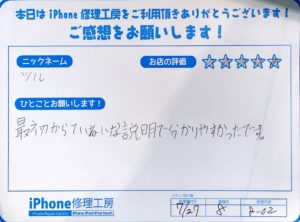 本日は iPhone 修理工房をご利用頂きありがとうございます!
ご感想をお願いします!
ニックネーム
ツル
お店の評価
☆☆☆☆☆
ひとことお願いします!
最初からていねいな説明で分かりやすかったです。
iPhone修理工房
iPhone Repair Factory
7/27
8